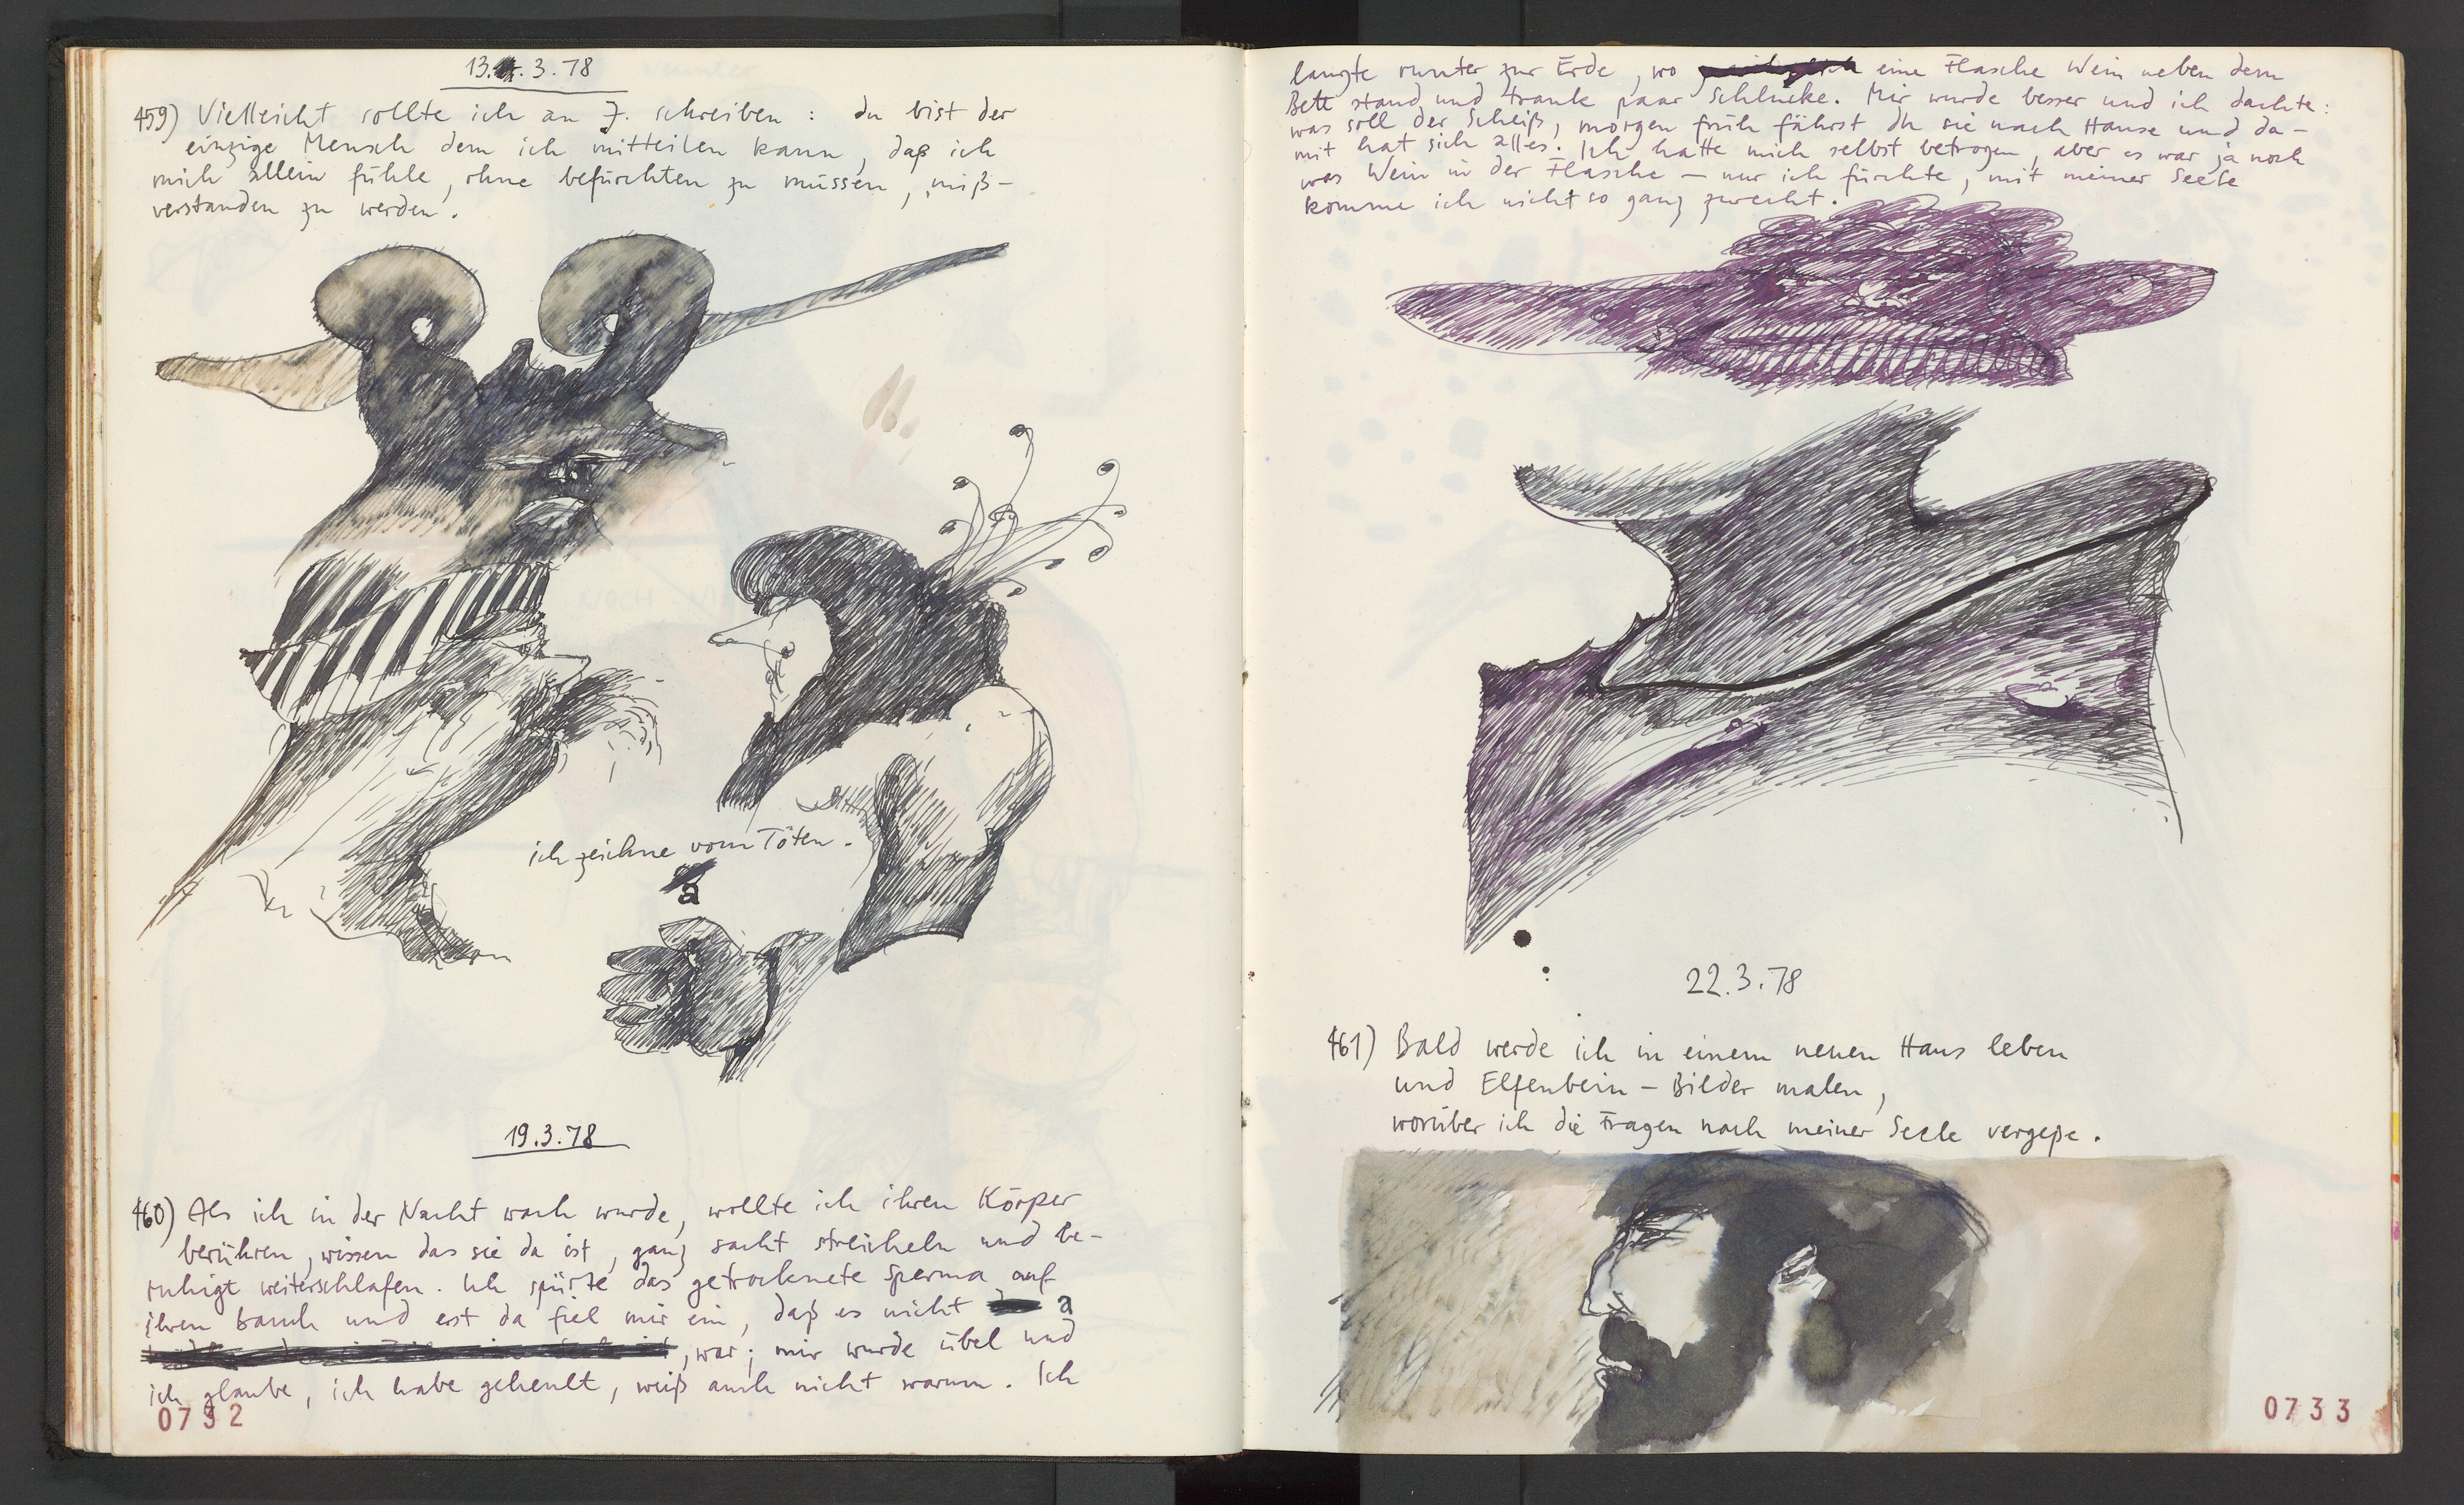 13. 3. 78
459) Vielleicht sollte ich an J. schreiben : du bist der
einzige Mensch dem ich mitteilen kann, daß ich
mich allein fühle, ohne befürchten zu müssen, miß-
verstanden zu werden.
ich zeichne vom Töten.
a
19.3.78
460) Als ich in der Nacht wach wurde, wollte ich ihren Körper
berühren, wissen das sie da ist, ganz sacht streicheln und be-
ruhigt weiterschlafen. Ich spürte das getrocknete Sperma auf
ihrem Bauch und erst da fiel mir ein, daß es nicht a
, war; mir wurde übel und
ich glaube, ich habe geheult, weiß auch nicht warum. Ich
0732
langte runter zur Erde, wo eine Flasche Wein neben dem
Bett stand und trank paar Schlucke. Mir wurde besser und ich dachte:
was soll der Scheiß, morgen früh fährst du sie nach Hause und da-
mit hat sich alles. Ich hatte mich selbst betrogen, aber es war ja noch
was Wein in der Flasche – nur ich fürchte, mit meiner Seele
komme ich nicht so ganz zurecht.
22.3.78
461) Bald werde ich in einem neuen Haus leben
und Elfenbein – Bilder malen,
worüber ich die Fragen nach meiner Seele vergeße.
0733